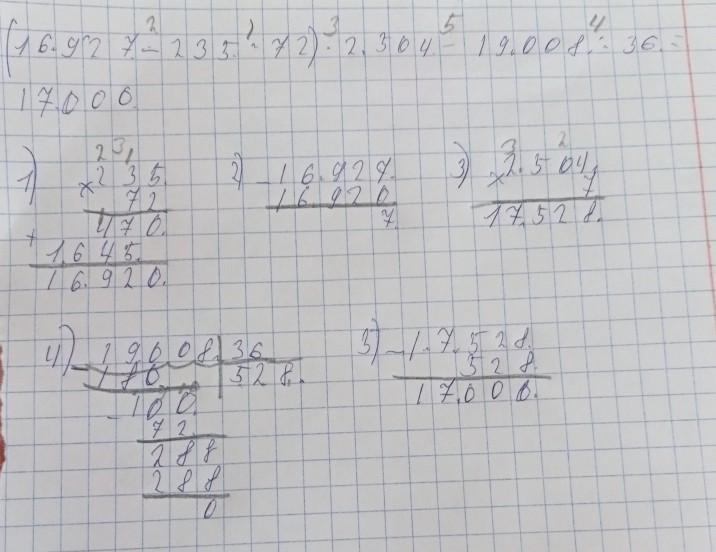 2 1 3 5 4
(16.927.-235.·72)·2.504-19.008.:36.=
17.000.
1) 2 3 1
×235.
72
470.
+
1.645.
16.920.
2) -16.927.
16.920
7.
3) 3 2
×2.504
7
17.528.
4) -19008. 36
180 528.
-100.
72
288
288
0
5) -17.528.
528.
17.000.